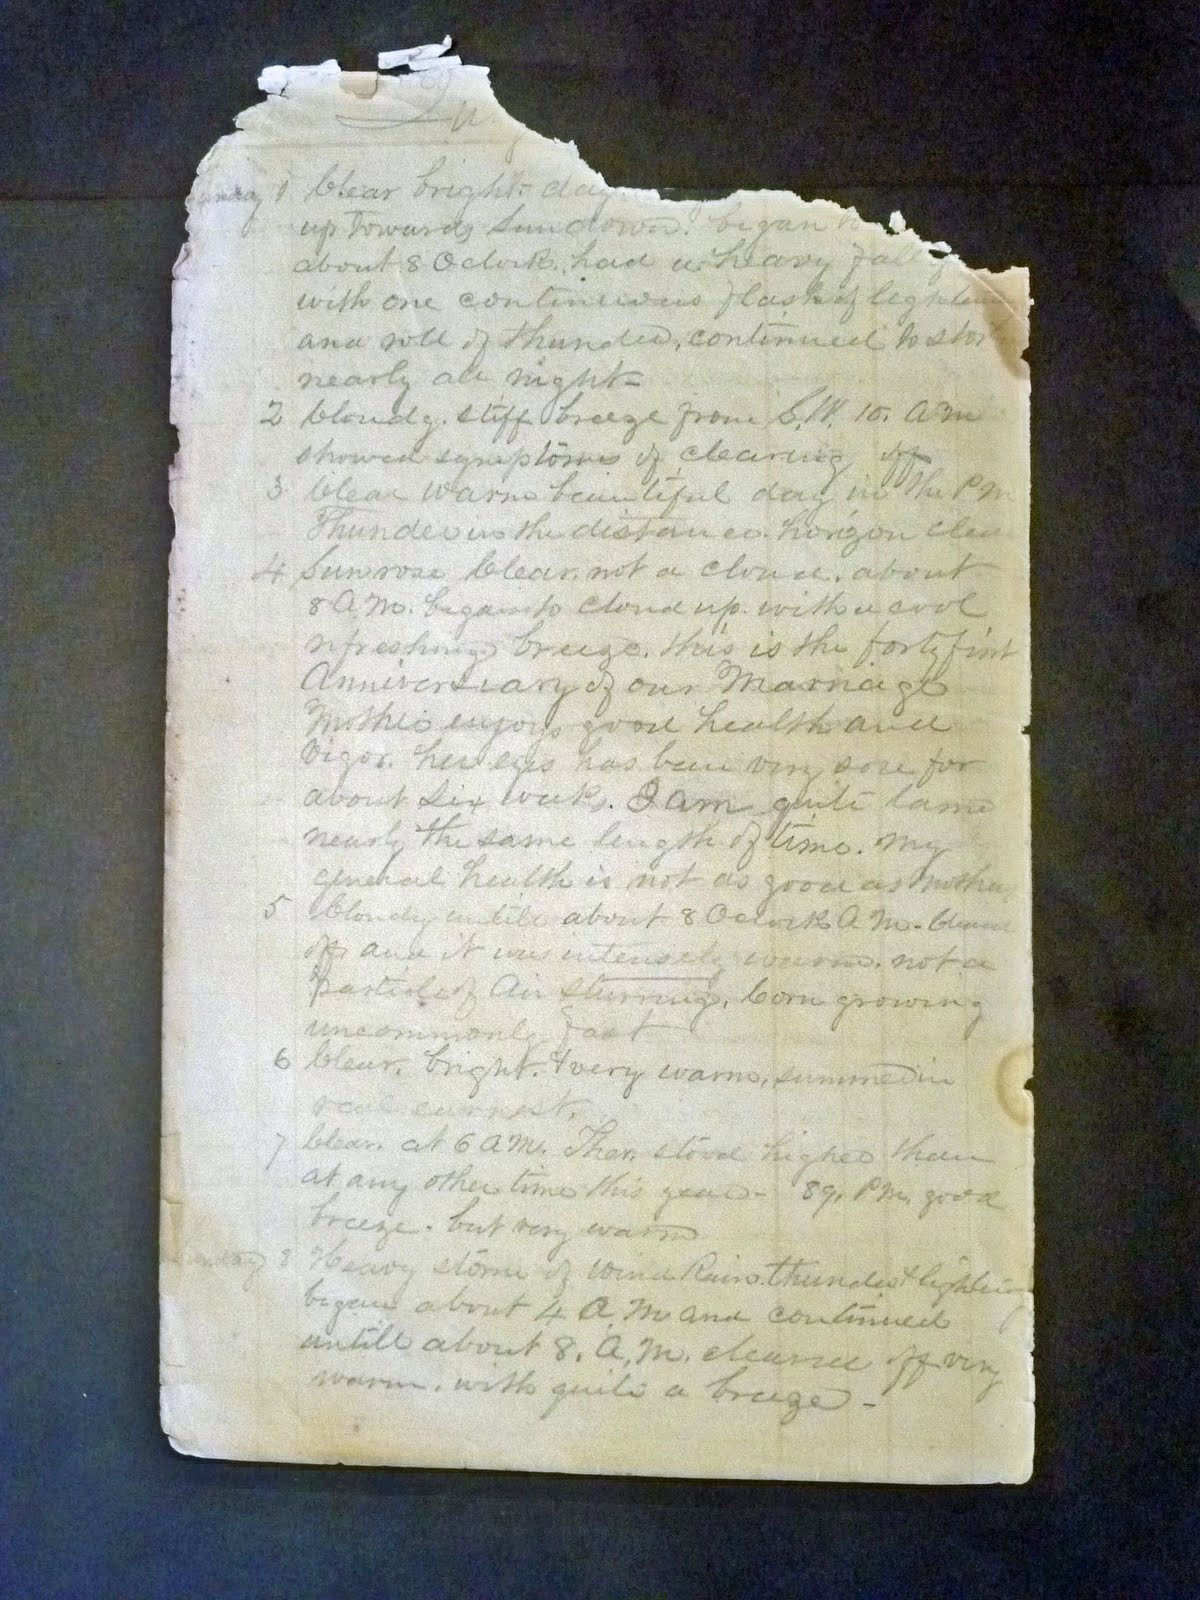 Sunday 1 Clear bright day.
up towards Sundown. began
about 8 Oclock. had a heavy fall
with one continuous flash of
and roll of thunder, continued to
nearly all night-
2 Cloudy. stiff breeze from S.W. 10. A.M
showed symptoms of clearing off
3 Clear warm beautiful day in the P M
Thunder in the distance. horizon
4 Sunrose Clear. not a cloud. about
8 A.M. began to cloud up. with a cool
refreshing breeze. this is the fortyfirst
Anniversiary of our Marriage
Mother enjoys good health and
Vigor. her eyes has been very sore for
about Six weeks. I am quite lame
nearly the same length of time. my
general health is not as good as mother
5 Cloudy untill about 8 Oclock A M.
off and it was intensely warm. not a
particle of Air Stirring. Corn growing
uncommonly fast
6 Clear. bright. & very warm, summer in
real earnest.
7 Clear. at 6 A M. Ther. stood higher than
at any other time this year- 89. P M. good
breeze. but very warm
Sunday 8 Heavy storm of wind Rain. thunder &
began about 4 A. M and continued
untill about 8. A. M. cleared off very
warm. with quite a breeze -